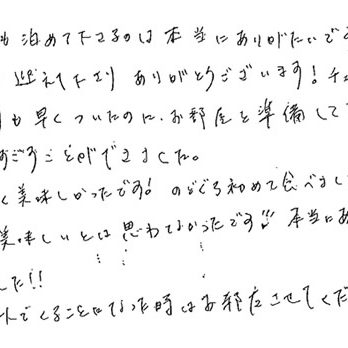 も泊めて下さるのは本当にありがたいです
迎えて下さり ありがとうございます!チェ
も早くついたのに、お部屋を準備して
すごすことができました。
く美味しかったです! のどぐろ初めて食べまし
美味しいとは思わなかったです!!! 本当にあ
した!!
くることになった時はお部屋させてくだ